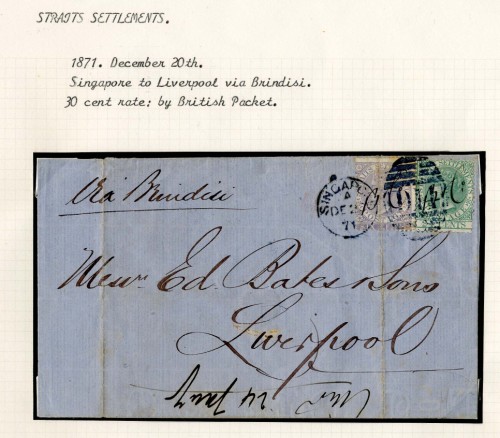 STRAITS SETTLEMENTS.
1871. December 20th.
Singapore to Liverpool via Brindisi.
30 cent rate: by British Packet.
Via Brindisi
SINGAP
DE
71
CENTS
Messrs Ed. Bates & Sons
Liverpool